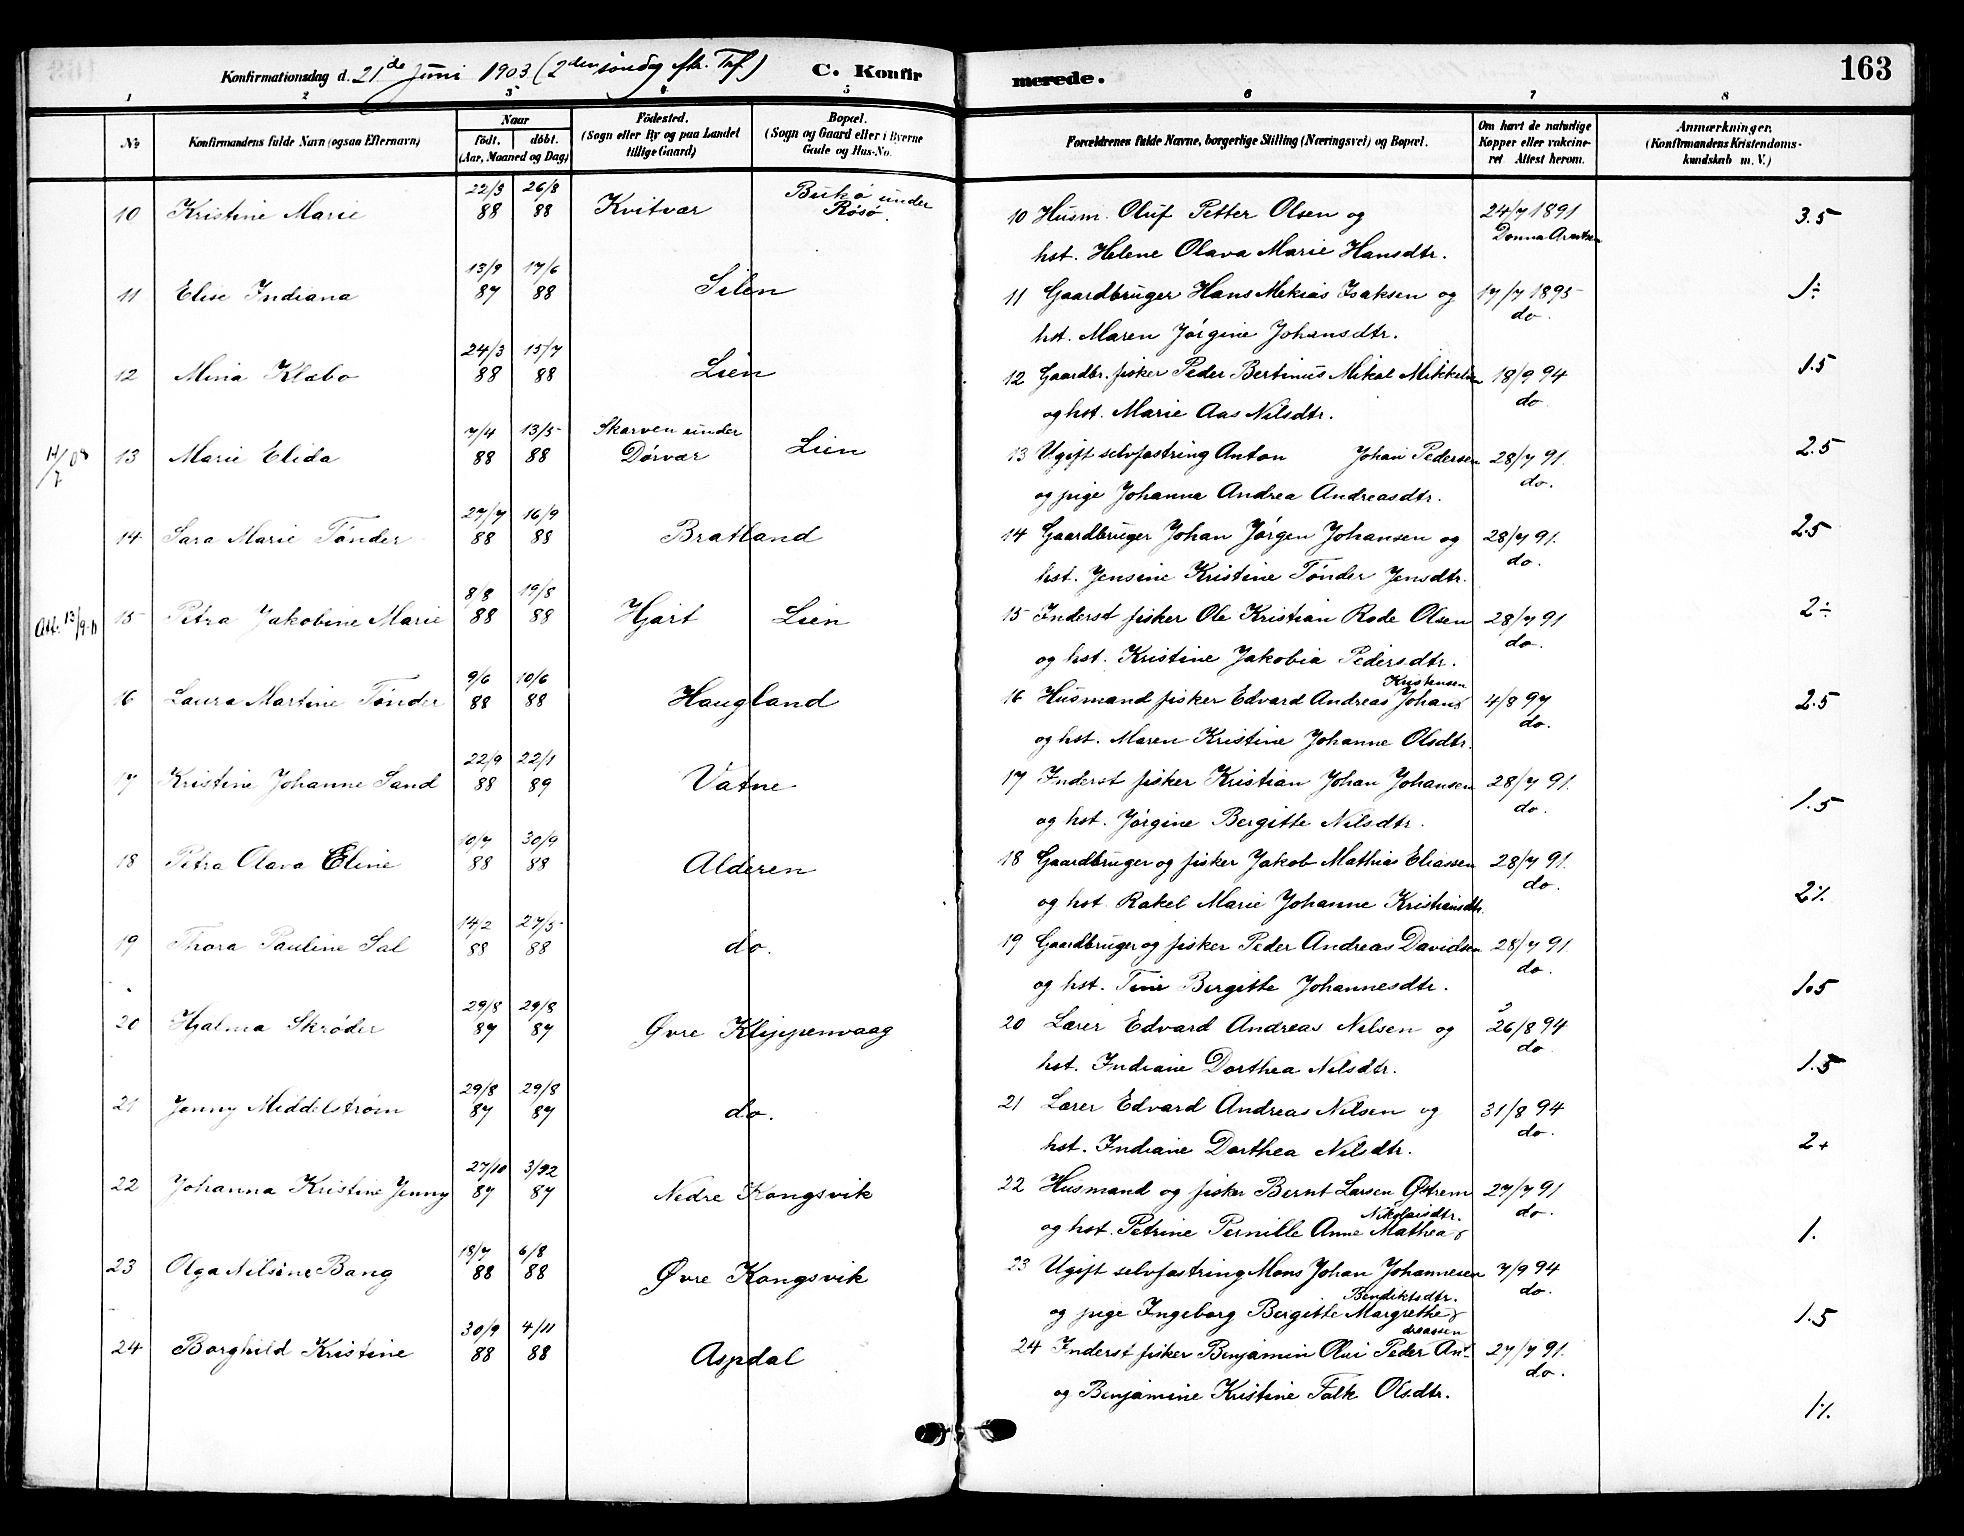 Konfirmationsdag d. 21de Juni 1903 (2den søndag eftr. Tref.) C. Konfirmerede. 163
1 2 3 4 5 6 7 8
No Konfirmandens fulde Navn (ogsaa Efternavn) Naar født. døbt. (Aar, Maaned og Dag) Fødested. (Sogn eller By og paa Landet tillige Gaard) Bopæl. (Sogn og Gaard eller i Byerne Gade og Hus-No. Forældrenes fulde Navne, borgerlige Stilling (Næringsvei) og Bopæl. Om havt de naturlige Kopper eller vakcineret Attest herom. Anmærkninger. (Konfirmandens Kristendomskundskab m. V.)
10 Kristine Marie 22/3 88 26/8 88 Kvitvær Bukø under Røsø. 10 Husm. Oluf Petter Olsen og 24/7 1891 Donna Arntsen 3.5
hst. Helene Olava Marie Hansdtr.
11 Elise Indiana 13/9 87 17/6 88 Silen 11 Gaardbruger Hans Mekias Isaksen og 17/7 1895 do. 1÷
hst. Maren Jørgine Johansdtr.
12 Mina Klæbo 24/3 88 15/7 88 Lien 12 Gaardbr. fisker Peder Bertinus Mikal Mikkelsen 18/9 94 do 1.5
og hst. Marie Aas Nilsdtr.
13 Marie Elida 7/4 88 13/5 88 Skarven under Dørvær Lien 13 Ugift selvfostring Anton Johan Pedersen 28/7 91. do. 2.5
og pige Johanna Andrea Andreasdtr.
14 Sara Marie Tønder 27/7 88 16/9 88 Bratland 14 Gaardbruger Johan Jørgen Johansen og 28/7 91. do. 2.5
hst. Jensine Kristine Tønder Jensdtr.
Att. 13/9-11 15 Petra Jakobine Marie 8/8 88 19/8 88 Hjart Lien 15 Inderst fisker Ole Kristian Rode Olsen 28/7 91 do. 2÷
og hst. Kristine Jakobia Pedersdtr.
16 Laura Martine Tønder 9/6 88 10/6 88 Haugland 16 Husmand fisker Edvard Andreas Johan Kristensen 4/8 97 do. 2.5
og hst. Maren Kristine Johanne Olsdtr.
17 Kristine Johanne Sand 22/9 88 22/1 89 Vatne 17 Inderst fisker Kristian Johan Johansen 28/7 91. do. 1.5
og hst. Jørgine Bergitte Nilsdtr.
18 Petra Olava Eline 10/7 88 30/9 88 Alderen 18 Gaardbruger og fisker Jakob Mathias Eliassen 28/7 91. do. 2%
og hst. Rakel Marie Johanne Kristiansdtr.
19 Thora Pauline Sal 14/2 88 27/5 88 do. 19 Gaardbruger og fisker Peder Andreas Davidsen 28/7 91 do. 1.5
og hst. Tine Bergitte Johannesdtr.
20 Hjalma Skrøder 29/8 87 29/8 87 Øvre Klippenvaag 20 Lærer Edvard Andreas Nilsen og 26/8 94 do 1.5
hst. Indiane Dorthea Nilsdtr.
21 Jenny Middelstrøm 29/8 87 29/8 87 do. 21 Lærer Edvard Andreas Nilsen og 31/8 94 do. 2+
hst. Indiane Dorthea Nilsdtr.
22 Johanna Kristine Jenny 27/10 87 87 Nedre Kongsvik 22 Husmand og fisker Bernt Larsen Østrem 27/7 91 do. 1.
og hst. Petrine Pernille Anne Mathea Nikolaisdtr.
23 Olga Nilsine Bang 18/7 88 6/8 88 Øvre Kongsvik 23 Ugift selvfostring Mons Johan Johannesen 7/9 94 do. 1.5
og pige Ingeborg Bergitte Margrethe Bendiktsdtr.
24 Borghild Kristine 30/9 88 4/11 88 Aspdal 24 Inderst fisker Benjamin Olai Peder Andreassen 27/7 91. do. 1%
og Benjamine Kristine Falk Olsdtr.